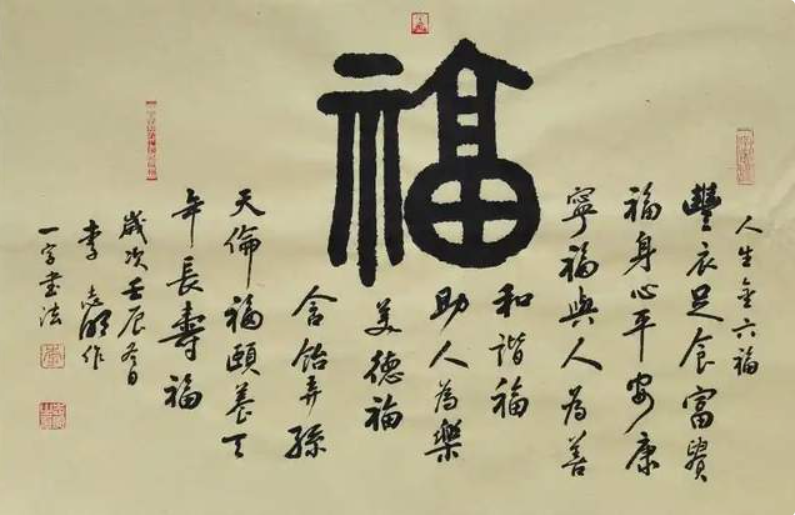 福
人生金六福
豐衣足食富貴
福身心平安康
寧福與人為善
和諧福
助人為樂
美德福
含飴弄孫
天倫福頤養天
年長壽福
歲次壬辰冬日
李志明作
一字書法